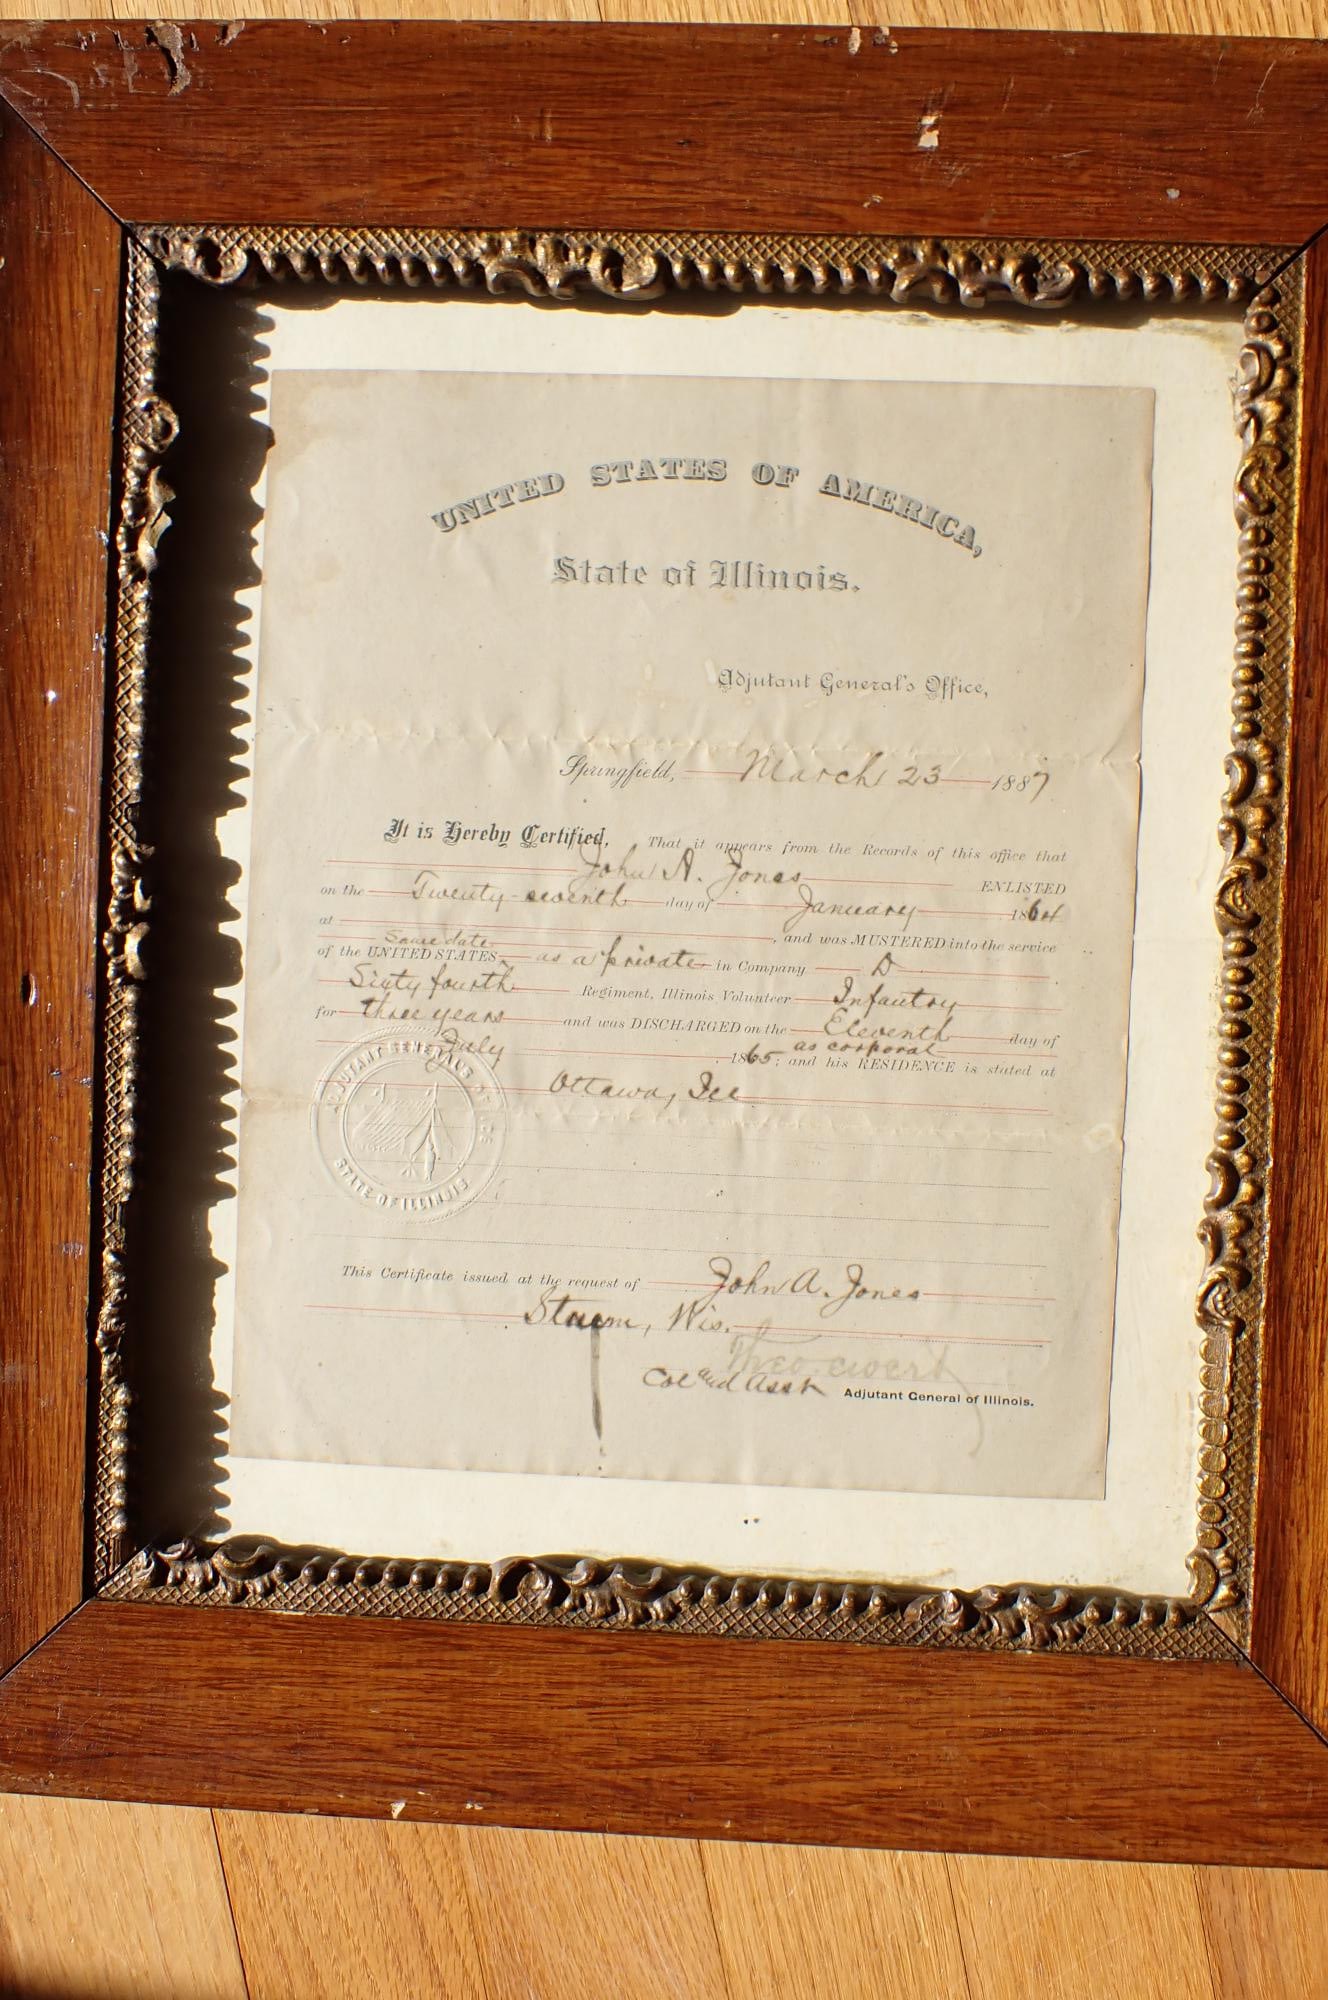 UNITED STATES OF AMERICA,
State of Illinois.
Adjutant General's Office,
Springfield, March 23 1887
It is Hereby Certified, That it appears from the Records of this office that
John A. Jones ENLISTED
on the Twenty-seventh day of January 1864
at , and was MUSTERED into the service
same date
of the UNITED STATES, as a private in Company D
Sixty fourth Regiment, Illinois Volunteer Infantry
for three years and was DISCHARGED on the Eleventh day of
as corporal
July , 1865; and his RESIDENCE is stated at
Ottawa, Ill
ADJUTANT GENERALS OFFICE
STATE OF ILLINOIS
This Certificate issued at the request of John A. Jones
Wis.
Theo. Ewert
Col and Asst Adjutant General of Illinois.